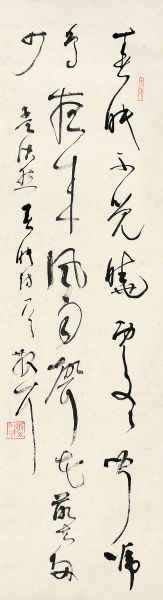 春眠不覺曉處々聞啼
鳥夜來風雨聲花落知多
少
孟浩然春眠詩 散耳